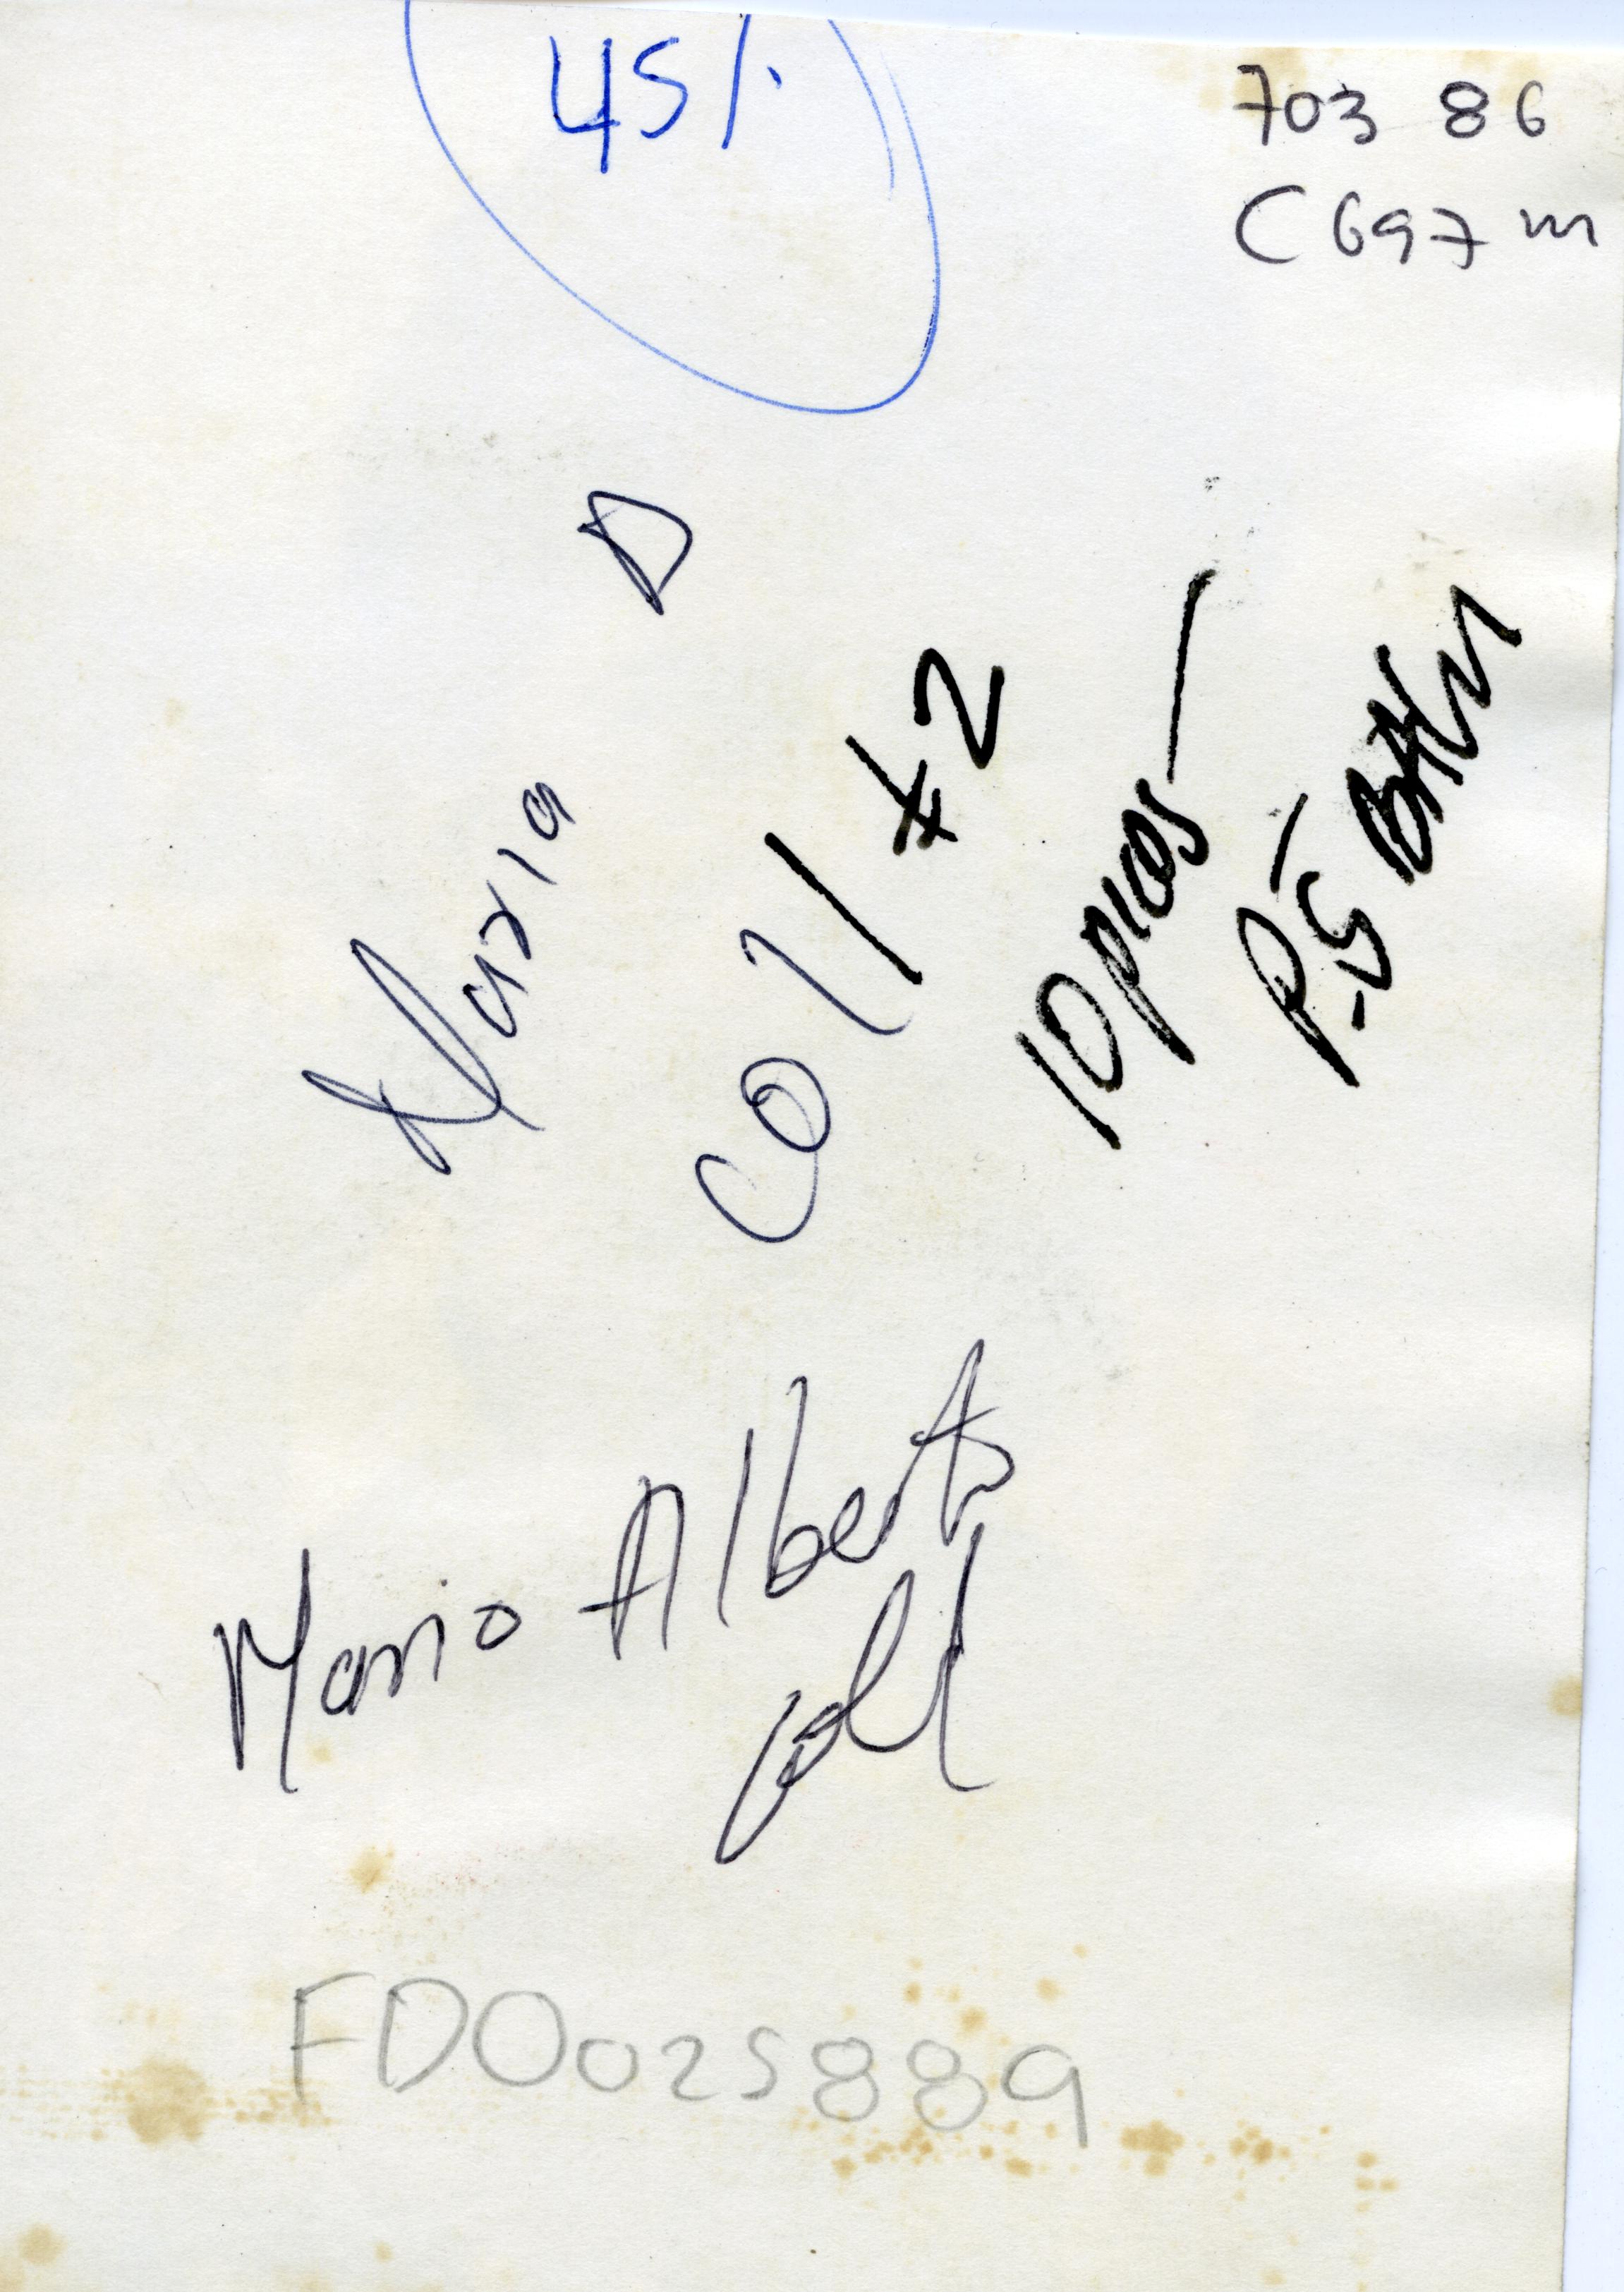 45%
703 86
C697m
Maria D
Coll #2
10 picos
P-5
Mario Alberto
Coll
FD0025889